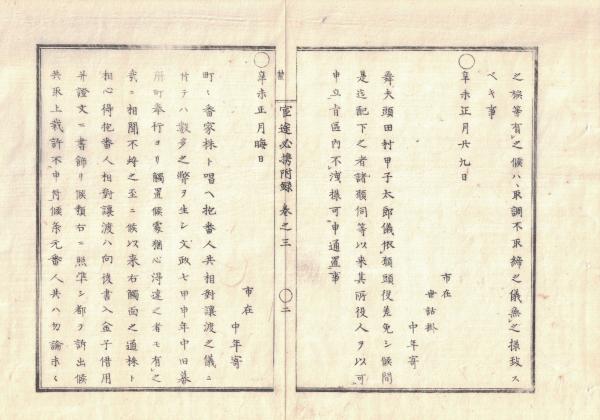 之族等有之候ハヽ取調不取締之儀無之様致ス
ベキ事
〇
辛未正月廿九日
市在
世話掛
中年寄
舞太頭田村甲子太郎儀依頼頭役差免シ候間
是迄配下之者諸願伺等以来其所役人ヲ以可
申立旨區内不洩様可申通置事
官途必携附録 巻之三
〇二
〇
辛未正月晦日
市在
中年寄
町々番家株ト唱ヘ抱番人共相對讓渡之儀ニ
付テハ數多之弊ヲ生シ文政七甲申年中旧幕
町奉行ヨリ觸置候處猶心得違之者モ有之
哉ニ相聞不埒之至ニ候以来右觸面之通株ト
相心得抱番人相對讓渡ハ向後書入金子借用
并證文ニ書飾リ候類右ニ照準シ都テ訴出候
共取上裁許不申付候条元番人共ハ勿論末々